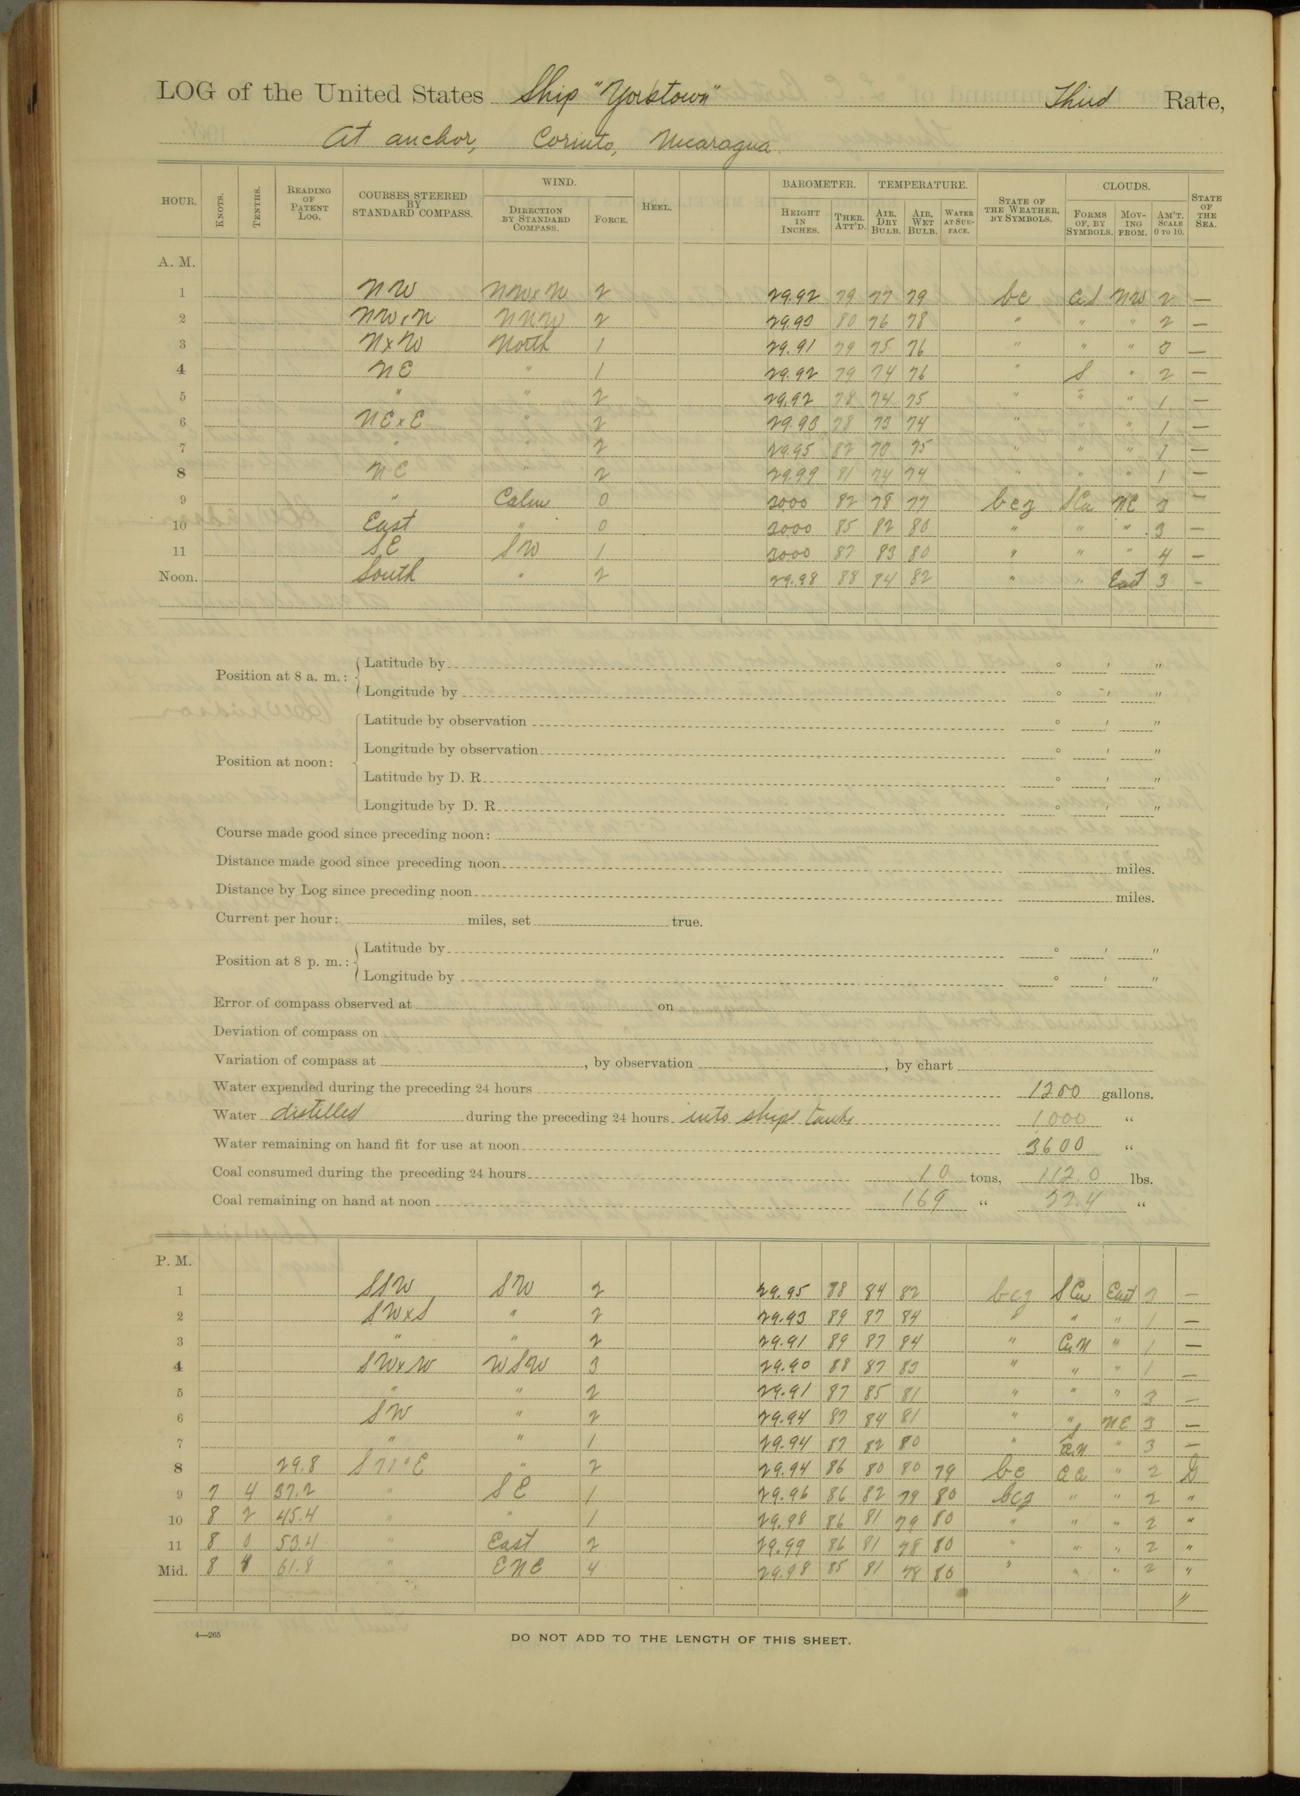 LOG of the United States Ship "Yorktown" Third Rate,
At anchor, Corinto, Nicaragua
HOUR. KNOTS. TENTHS. READING OF PATENT LOG. COURSES STEERED BY STANDARD COMPASS. WIND. DIRECTION BY STANDARD COMPASS. FORCE. HEEL. BAROMETER. HEIGHT IN INCHES. THER. ATT'D. TEMPERATURE. AIR, DRY BULB. AIR, WET BULB. WATER AT SUR-FACE. STATE OF THE WEATHER, BY SYMBOLS. CLOUDS. FORMS OF, BY SYMBOLS. MOV-ING FROM. AM'T. SCALE 0 TO 10. STATE OF THE SEA.
A. M.
1 NW NWxN 2 29.92 79 77 79 bc NW 2 —
2 NWxN NNW 2 29.90 80 76 78 " " " 2 —
3 NxW North 1 29.91 79 75 76 " " " 3 —
4 NE " 1 29.92 79 74 76 " S " 2 —
5 " " 2 29.92 78 74 75 " " " 1 —
6 NExE " 2 29.93 78 73 74 " " " 1 —
7 " " 2 29.95 82 70 75 " " " 1 —
8 NE " 2 29.99 81 74 74 " " " 1 —
9 " Calm 0 3000 82 78 77 bcz SCu NE 3 —
10 East " 0 3000 85 82 80 " " " 3 —
11 SE SW 1 3000 87 83 80 " " " 4 —
Noon. South " 2 29.98 88 84 82 " " East 3 —
Position at 8 a. m.: Latitude by ° ' "
Longitude by ° ' "
Position at noon: Latitude by observation ° ' "
Longitude by observation ° ' "
Latitude by D. R. ° ' "
Longitude by D. R. ° ' "
Course made good since preceding noon:
Distance made good since preceding noon miles.
Distance by Log since preceding noon miles.
Current per hour: miles, set true.
Position at 8 p. m.: Latitude by ° ' "
Longitude by ° ' "
Error of compass observed at on
Deviation of compass on
Variation of compass at , by observation , by chart
Water expended during the preceding 24 hours 1250 gallons.
Water distilled during the preceding 24 hours into ships tanks 1000 "
Water remaining on hand fit for use at noon 3600 "
Coal consumed during the preceding 24 hours 10 tons, 1120 lbs.
Coal remaining on hand at noon 169 " 224 "
P. M.
1 SSW SW 2 29.95 88 84 82 bcz SCu East 2 —
2 SWxS " 2 29.93 89 87 84 " " " 1 —
3 " " 2 29.91 89 87 84 " CuN " 1 —
4 SWxW WSW 3 29.90 88 87 83 " " " 1 —
5 " " 2 29.91 87 85 81 " " " 3 —
6 SW " 2 29.94 87 84 81 " " NE 3 —
7 " " 1 29.94 87 82 80 " " 3 —
8 29.8 S71°E " 2 29.94 86 80 80 79 bc " 2
9 7 4 37.2 " SE 1 29.96 86 82 79 80 bcz " " 2 "
10 8 2 45.4 " " 1 29.98 86 81 79 80 " " " 2 "
11 8 0 53.4 " East 2 29.99 86 81 78 80 " " " 2 "
Mid. 8 4 61.8 " ENE 4 29.98 85 81 78 80 " " " 2 "
"
4—265
DO NOT ADD TO THE LENGTH OF THIS SHEET.